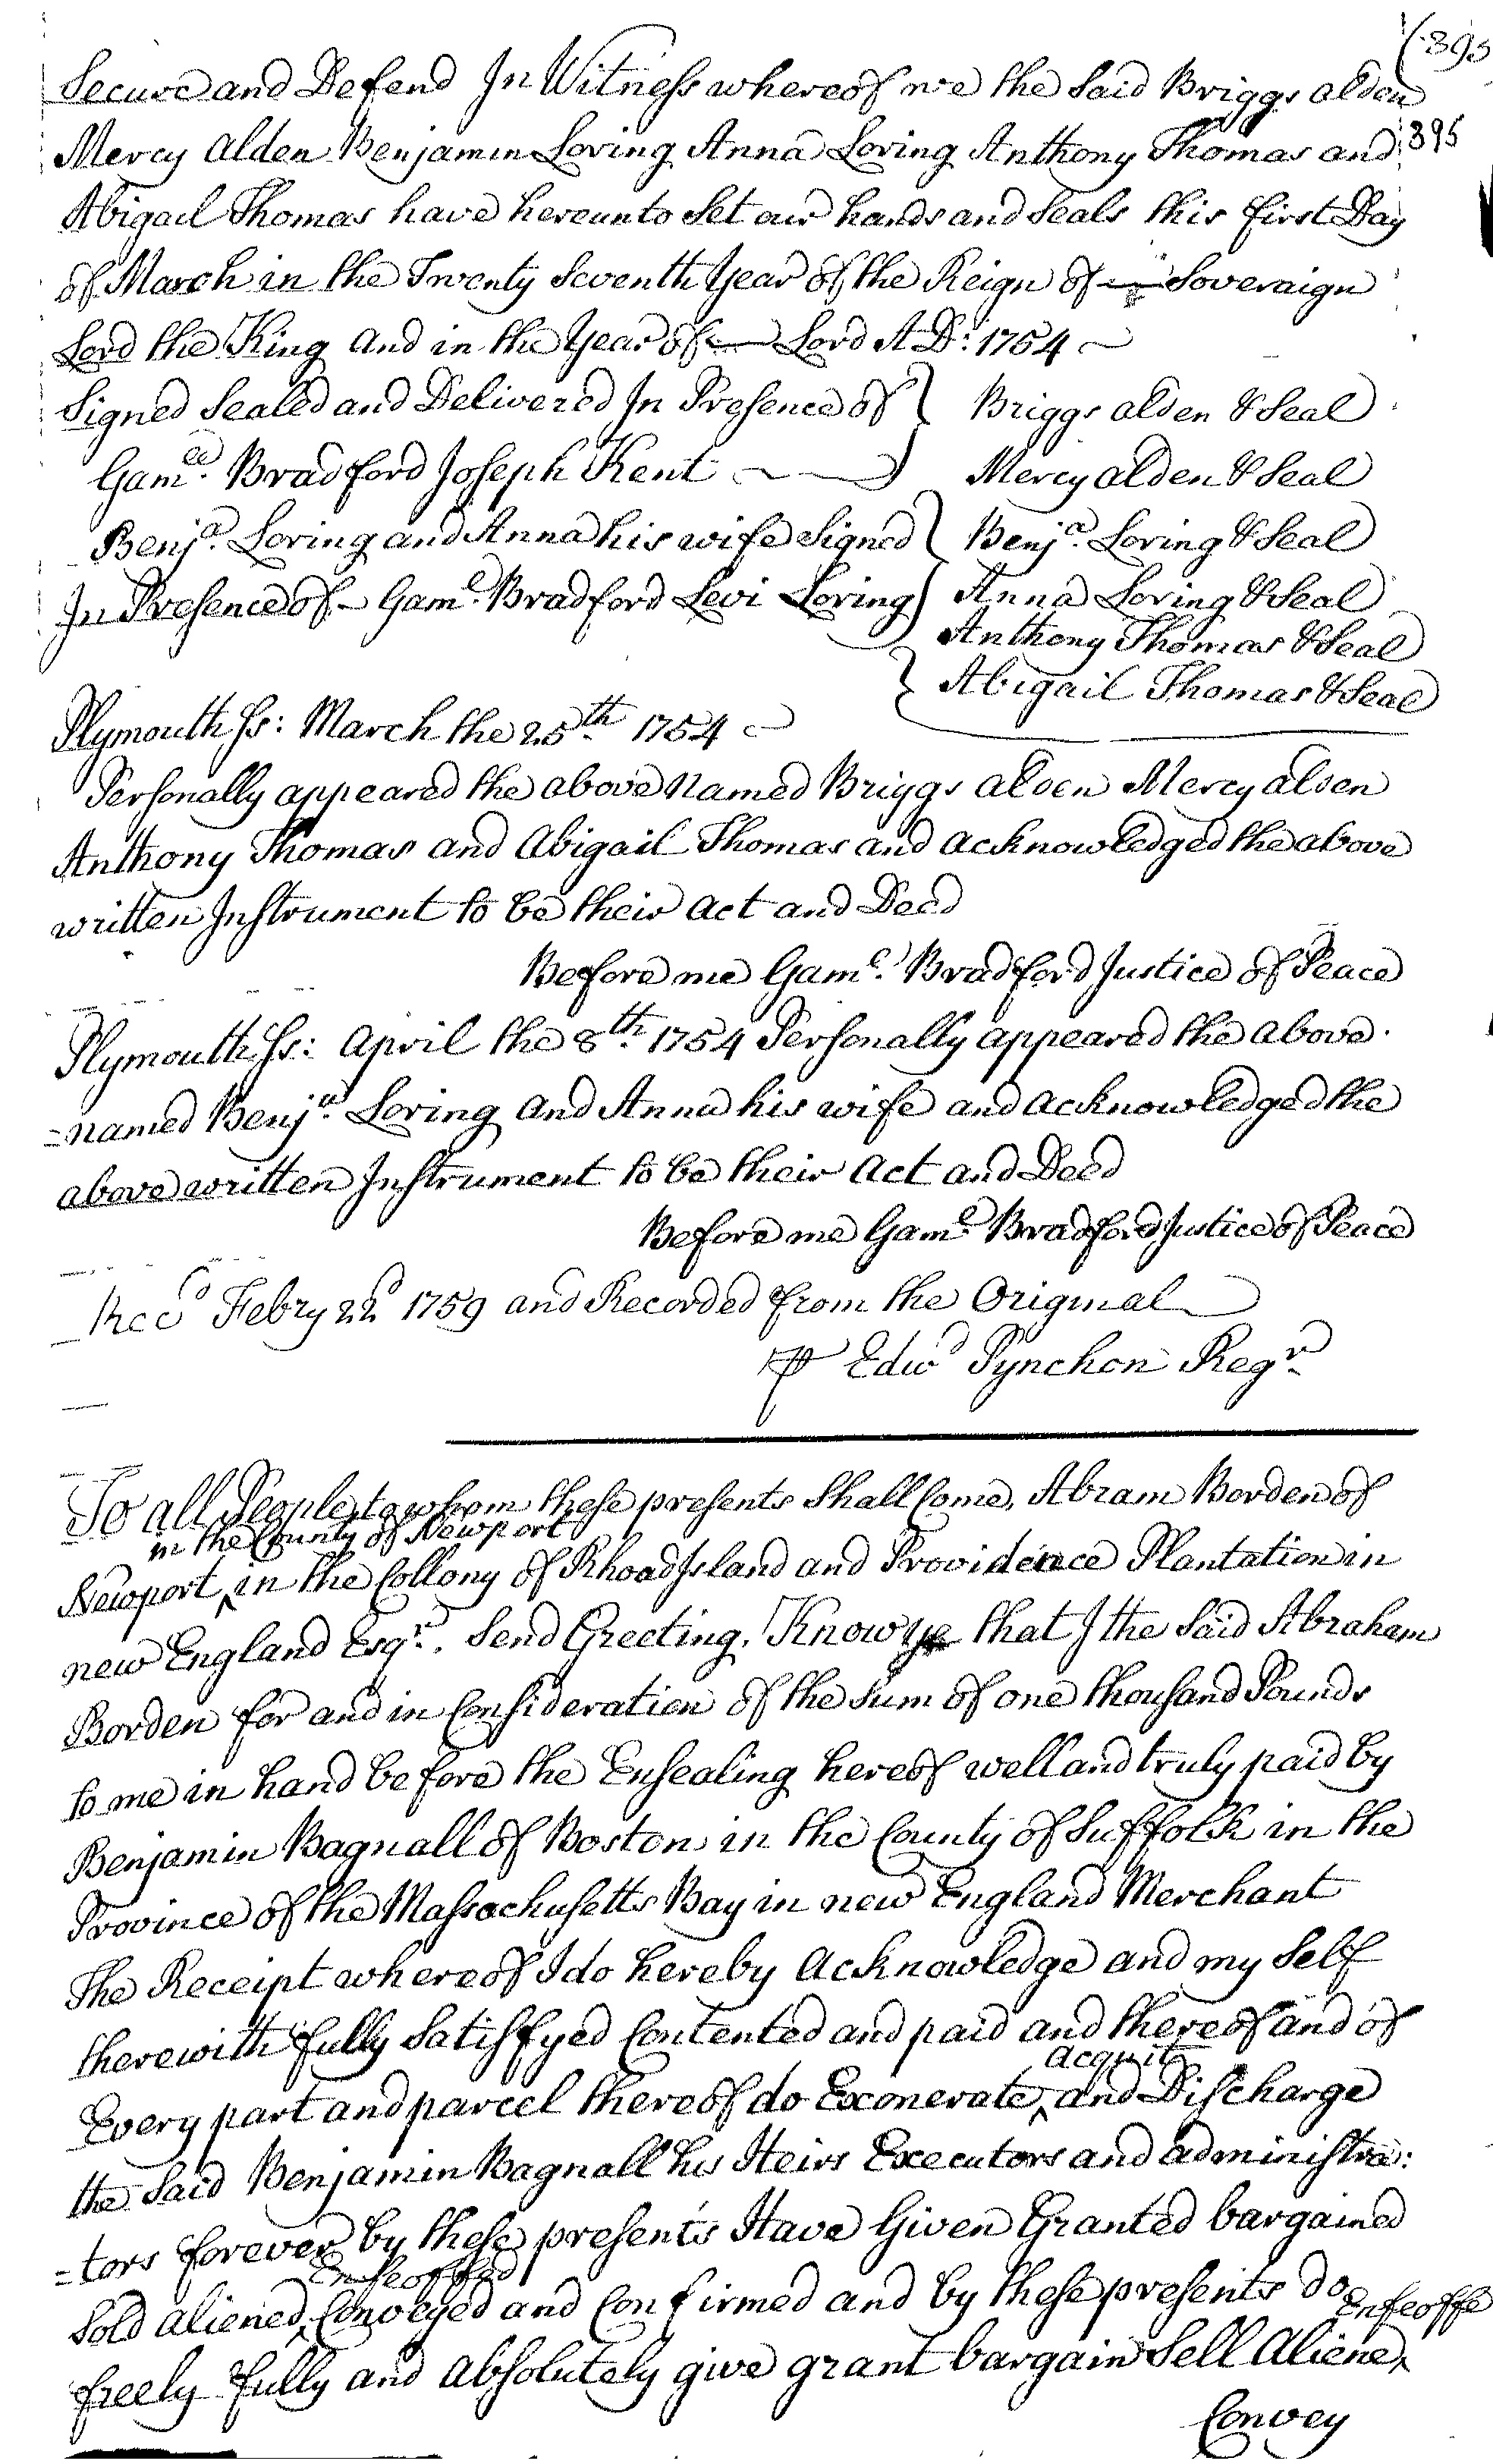 (393
Secure and Defend In Witness whereof we the Said Briggs alden
395
Mercy Alden Benjamin Loring Anna Loring Anthony Thomas and
Abigail Thomas have hereunto Set our hands and Seals this first Day
of March in the Twenty Seventh Year of the Reign of Soveraign
Lord the King and in the Year of Lord A D: 1754
Signed Sealed and Delivered In Presence of } Briggs alden & Seal
Gamel. Bradford Joseph Kent } Mercy alden & Seal
Benja. Loring and Anna his wife Signed } Benja. Loring & Seal
In Presence of Game. Bradford Levi Loring } Anna Loring & Seal
Anthony Thomas & Seal
Abigail Thomas & Seal
Plymouth Ss: March the 25th. 1754
Personally appeared the above named Briggs alden Mercy alden
Anthony Thomas and Abigail Thomas and acknowledged the above
written Instrument to be their act and Deed
Before me Game. Bradford Justice of Peace
Plymouth Ss: April the 8th. 1754 Personally appeared the above
=named Benja. Loring and Anna his wife and acknowledged the
above written Instrument to be their act and Deed
Before me Game. Bradford Justice of Peace
Recd Febry 22d 1759 and Recorded from the Original
⅌ Edwd Pynchon Regr.
To all People to whom these presents Shall Come, Abram Borden of
in the County of Newport
Newport ‸ in the Collony of Rhoad Island and Providence Plantation in
new England Esqr. Send Greeting. Know ye that I the Said Abraham
Borden for and in Consideration of the Sum of one thousand Pounds
to me in hand before the Ensealing hereof well and truly paid by
Benjamin Bagnall of Boston in the County of Suffolk in the
Province of the Massachusetts Bay in new England Merchant
The Receipt whereof I do hereby acknowledge and my Self
therewith fully Satisfyed Contented and paid and thereof and of
acquit
Every part and parcel thereof do Exonerate ‸ and Discharge
the Said Benjamin Bagnall his Heirs Executors and administra:
=tors forever by these presents Have Given Granted bargained
Enfeoffed
Sold aliened ‸ Conveyed and Confirmed and by these presents do
Enfeoffe
freely fully and absolutely give grant bargain Sell Aliene ‸
Convey